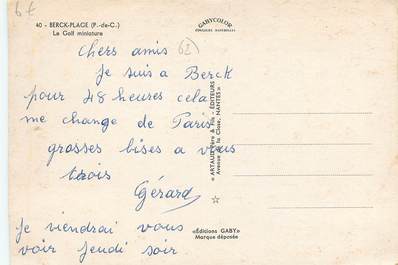 6€
40 - BERCK-PLAGE (P.-de-C.)
Le Golf miniature
GABYCOLOR
COULEURS NATURELLES
62
chers amis
Je suis a Berck
pour 48 heures cela
me change de Paris
grosses bises a vous
trois
Gérard
Je viendrai vous
voir jeudi soir
« ARTAUD Père & Fils - ÉDITEURS »
Avenue de la Close, NANTES
«Éditions GABY»
Marque déposée